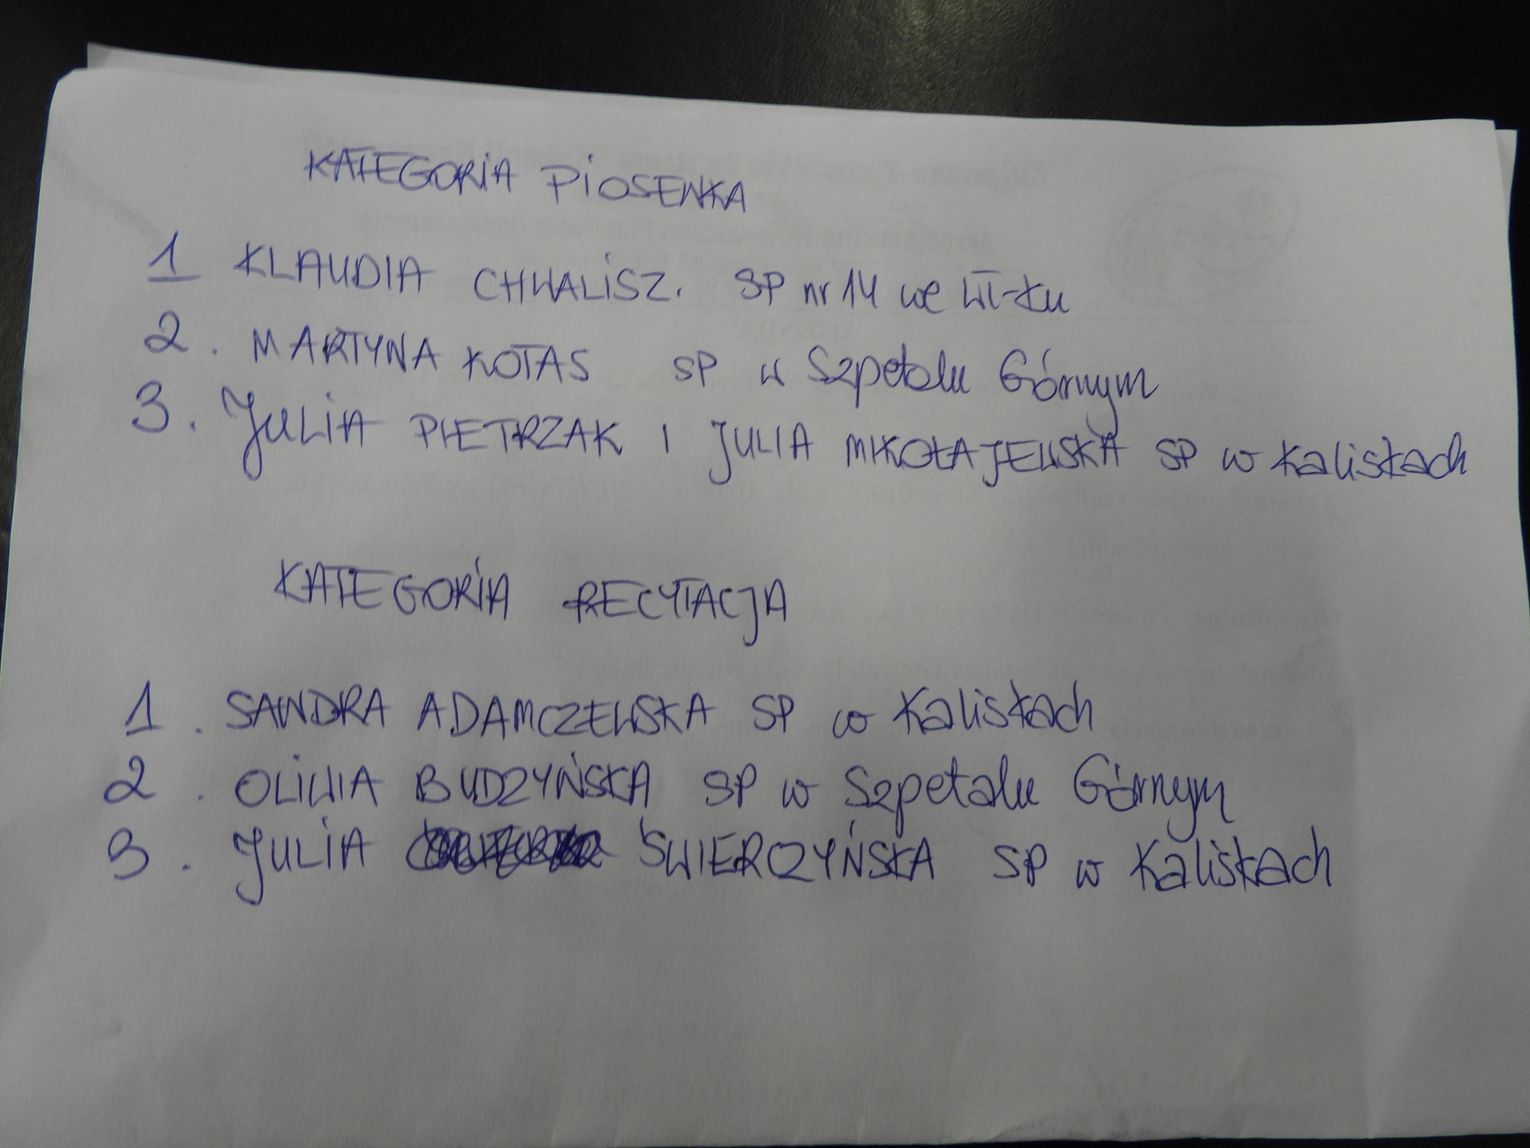 KATEGORIA PIOSENKA
1 KLAUDIA CHWALISZ. SP nr 14 we Wł-ku
2. MARTYNA KOTAS SP w Szpetalu Górnym
3. JULIA PIETRZAK I JULIA MIKOŁAJEWSKA SP w Kaliskach
KATEGORIA RECYTACJA
1. SANDRA ADAMCZEWSKA SP w Kaliskach
2. OLIWIA BUDZYŃSKA SP w Szpetalu Górnym
3. JULIA ŚWIERZYŃSKA SP w Kaliskach